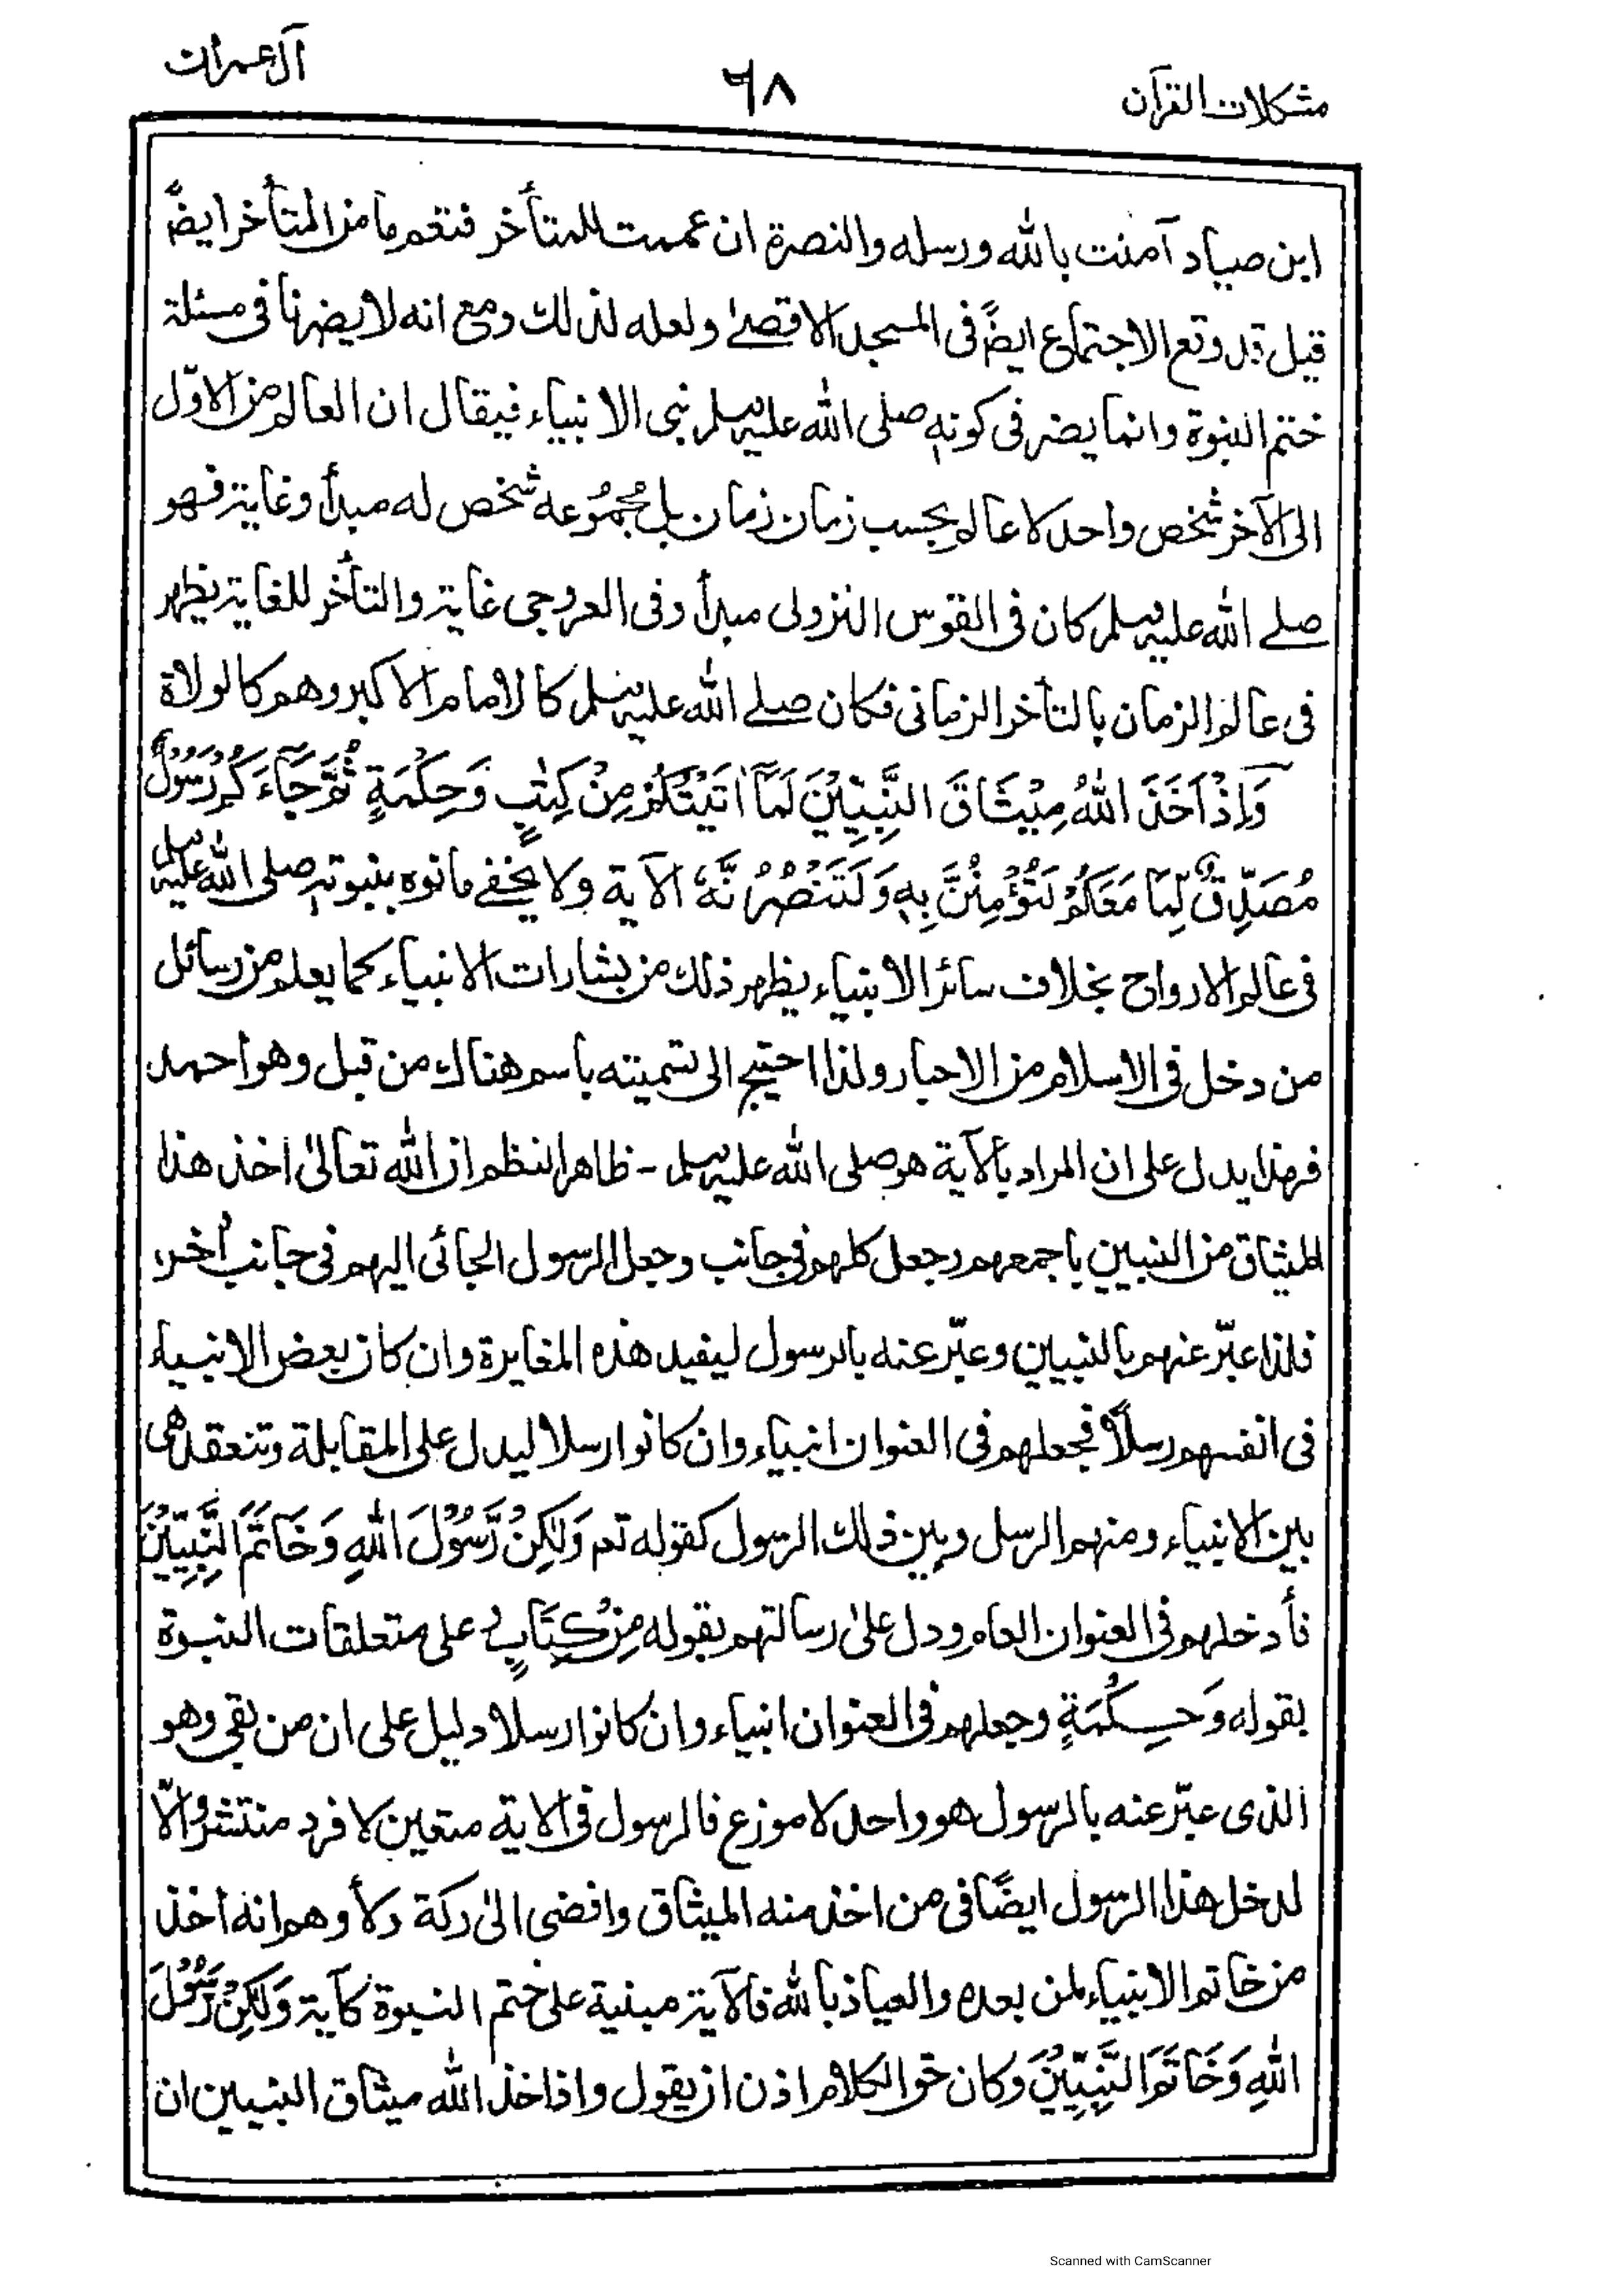 مشكلات القرآن ٦٨ آل عمران
ابن صياد آمنت بالله ورسله والنصرة ان عممت للمتأخر فتعم ما من المتأخر ايضًا
قيل قد وقع الاجتماع ايضًا فى المسجد الاقصےٰ ولعله لذلك ومع انه لا يضرنا فى مسئلة
ختم النبوة وانما يضر فى كونه صلى الله عليه وسلم نبى الانبياء فيقال ان العالم من الاوّل
الى الآخر شخص واحد لا عالم بحسب زمان زمان بل مجموعه شخص له مبدأ وغاية فهو
صلے الله عليه وسلم كان فى القوس النزولى مبدأ وفى العروجى غاية والتأخر للغاية يظهر
فى عالم الزمان بالتأخر الزمانى فكان صلے الله عليه وسلم كالامام الاكبر وهم كالولاة
وَاِذْ اَخَذَ اللهُ مِيْثَاقَ النَّبِيِّيْنَ لَمَآ اٰتَيْتُكُمْ مِنْ كِتٰبٍ وَحِكْمَةٍ ثُمَّ جَآءَكُمْ رَسُوْلٌ
مُصَدِّقٌ لِّمَا مَعَكُمْ لَتُؤْمِنُنَّ بِهٖ وَلَتَنْصُرُنَّهٗ الآية ولا يخفے ما نوه بنبوته صلى الله عليه وسلم
فى عالم الارواح بخلاف سائر الانبياء يظهر ذلك من بشارات الانبياء كما يعلم من رسائل
من دخل فى الاسلام من الاحبار ولذا احتيج الى تسميته باسم هناك من قبل وهو احمد
فهذا يدل على ان المراد بالآية هو صلى الله عليه وسلم - ظاهر النظم ان الله تعالىٰ اخذ هذا
الميثاق من النبيين باجمعهم وجعل كلهم فى جانب وجعل الرسول الجائى اليهم فى جانب اٰخر،
فلذا عبّر عنهم بالنبيين وعبّر عنه بالرسول ليفيد هذه المغايرة وان كان بعض الانبياء
فى انفسهم رسلاً فجعلهم فى العنوان انبياء وان كانوا رسلا ليدل على المقابلة وتنعقد هى
بين الانبياء ومنهم الرسل وبين ذلك الرسول كقوله تعـ وَلٰكِنْ رَّسُوْلَ اللهِ وَخَاتَمَ النَّبِيِّيْنَ
فأدخلهم فى العنوان العام ودل علىٰ رسالتهم بقوله مِنْ كِتَابٍ على متعلقات النبوة
بقوله وَحِكْمَةٍ وجعلهم فى العنوان انبياء وان كانوا رسلا دليل على ان من بقى وهو
الذى عبّر عنه بالرسول هو واحد لا موزع فالرسول فى الاية متعين لا فرد منتشر والّا
لدخل هذا الرسول ايضًا فى من اخذ منه الميثاق وافضى الىٰ ركة وأوهم انه اخذ
من خاتم الانبياء لمن بعده والعياذ بالله فالآية مبنية على ختم النبوة كآية وَلٰكِنْ رَسُوْلَ
اللهِ وَخَاتَمَ النَّبِيِّيْنَ وكان حق الكلام اذن ان يقول واذ اخذ الله ميثاق النبيين ان
Scanned with CamScanner